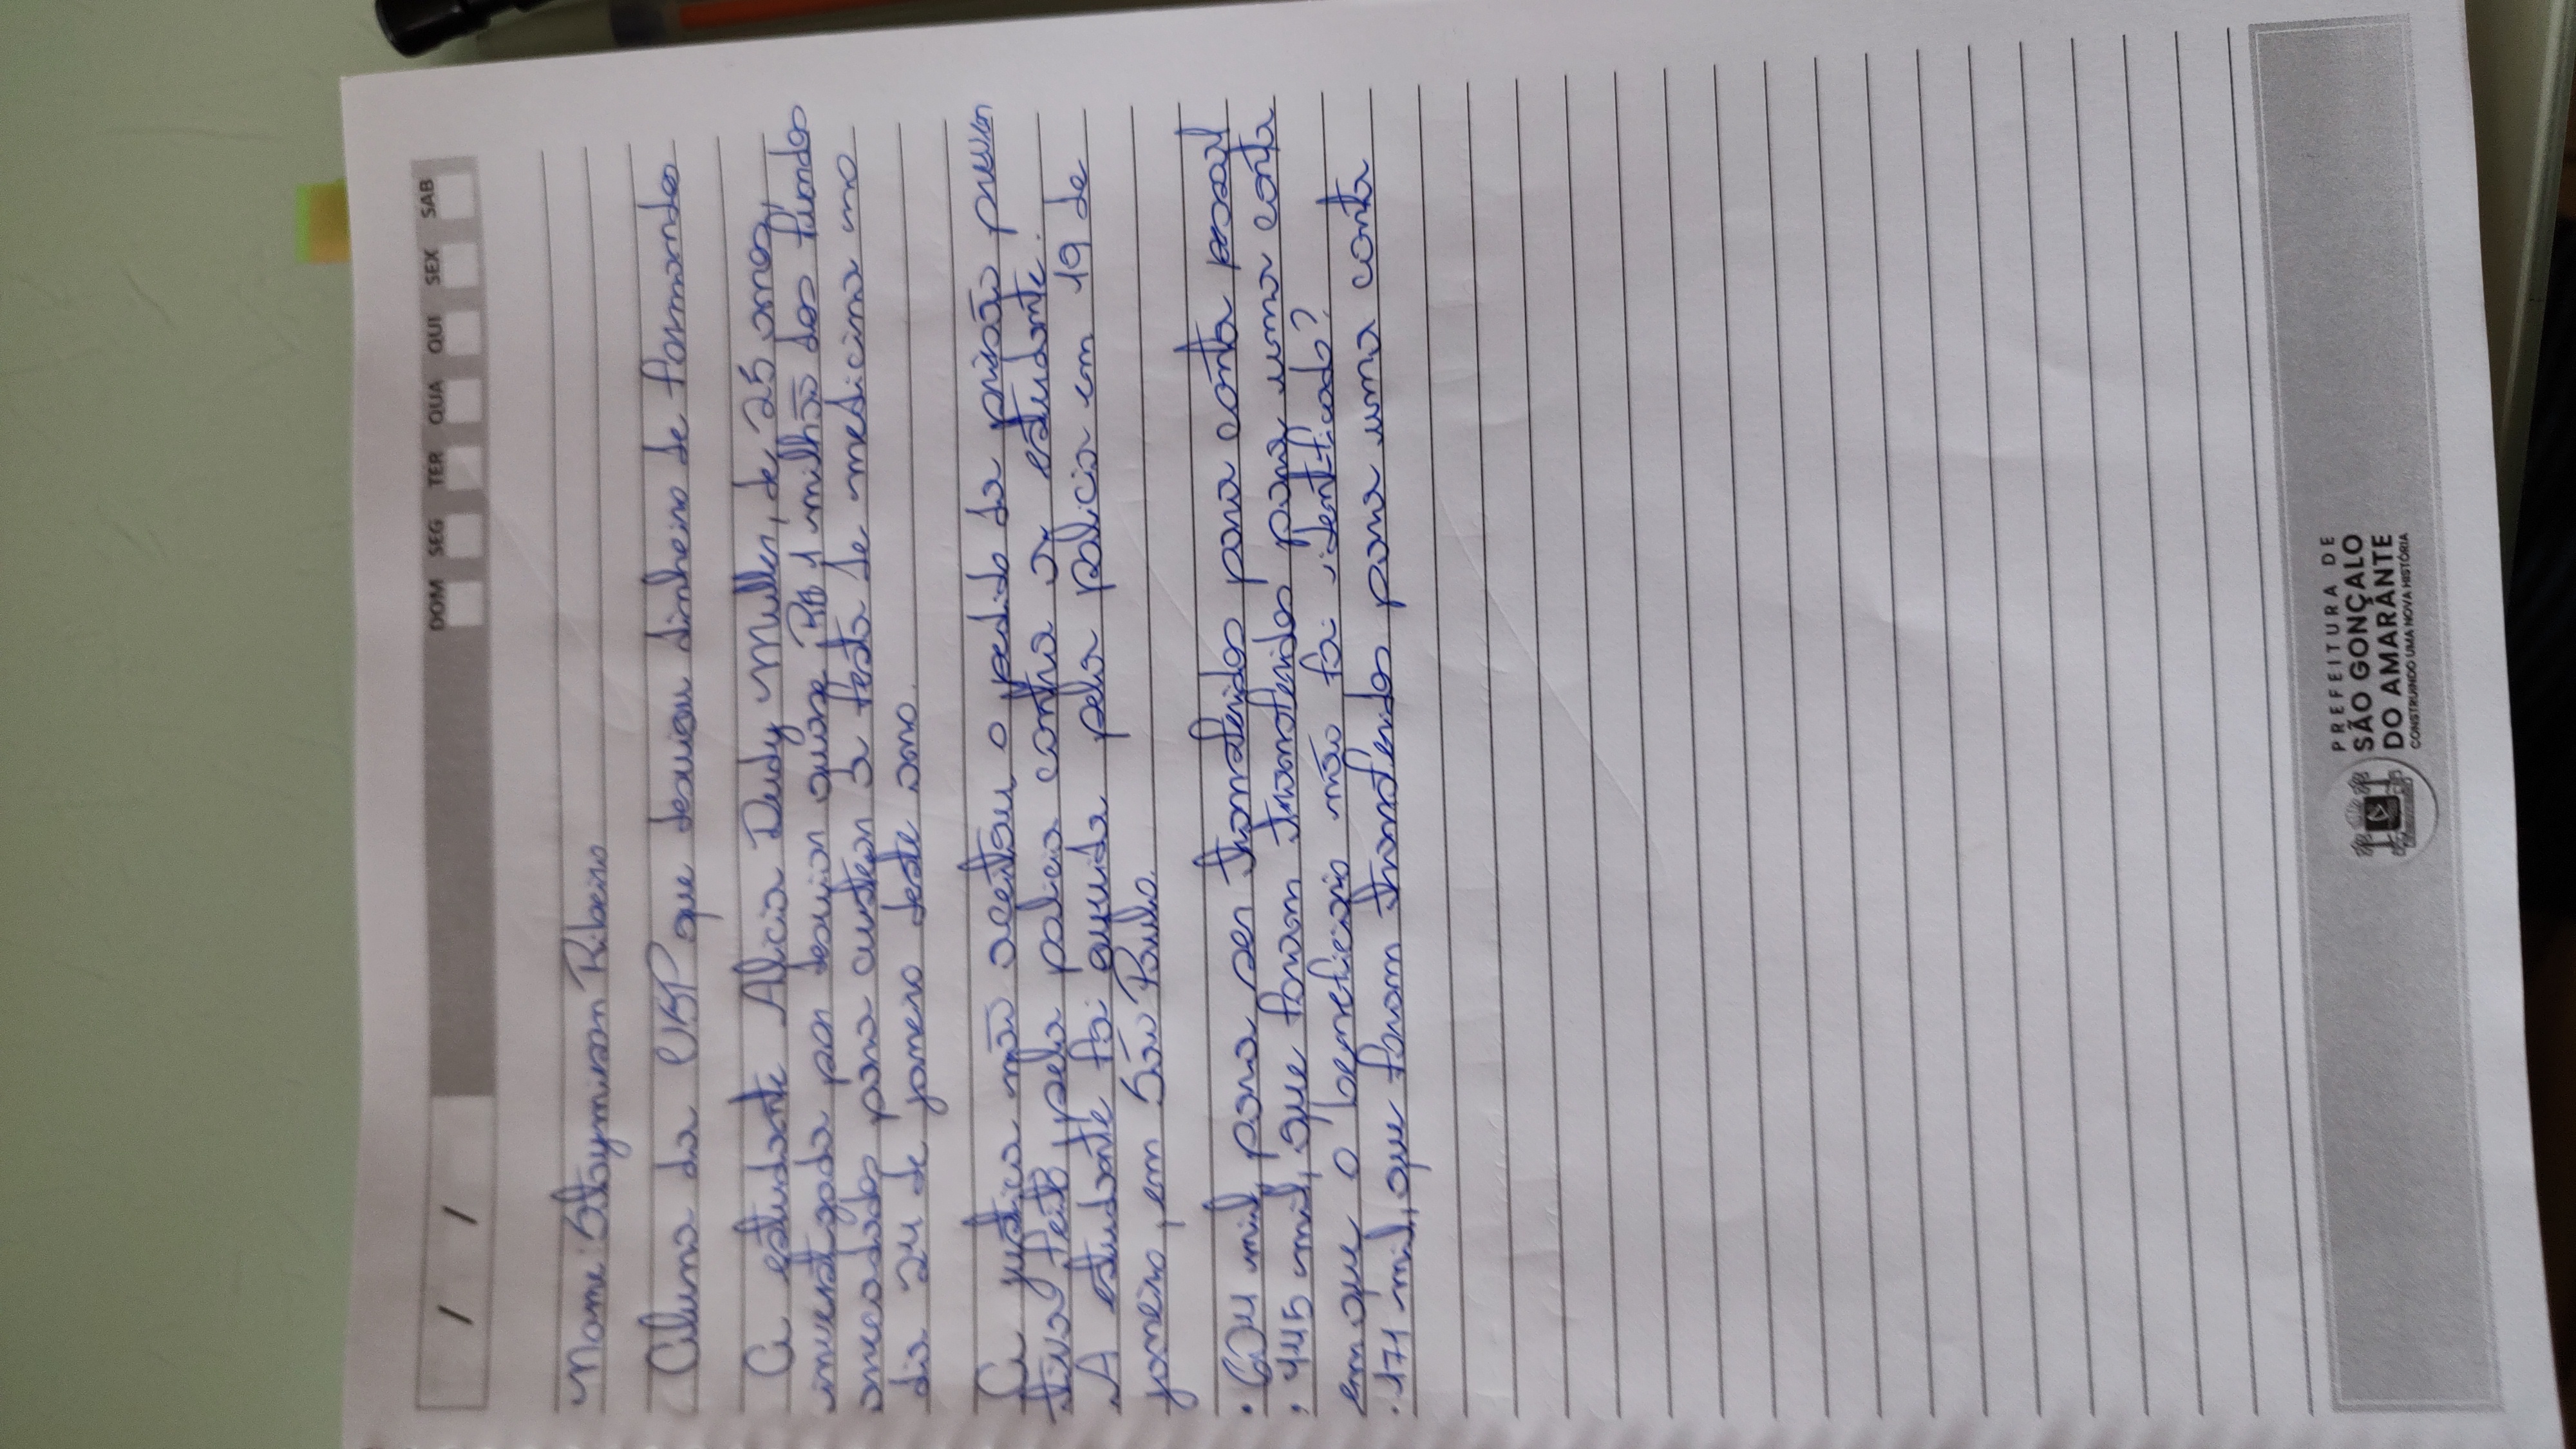 / /
DOM SEG TER QUA QUI SEX SAB
Nome: Staymisson Ribeiro
Aluna da USP que desviou dinheiro de formandos
A estudante Alicia Dudy Muller, de 25 anos,
investigada por desviar quase R$ 1 milhão dos fundos
arrecadados para custear a festa de medicina no
dia 24 de janeiro deste ano.
A justiça não aceitou o pedido da prisão preven
tiva feito pela policia contra a estudante.
A estudante foi ouvida pela policia em 19 de
janeiro, em São Paulo.
• 604 mil, para ser transferidos para conta pessoal
• 445 mil, que foram transferidos para uma conta
em que o beneficiario não foi identificado?
• 171 mil, que foram transferidos para uma conta
PREFEITURA DE
SÃO GONÇALO
DO AMARANTE
CONSTRUINDO UMA NOVA HISTÓRIA